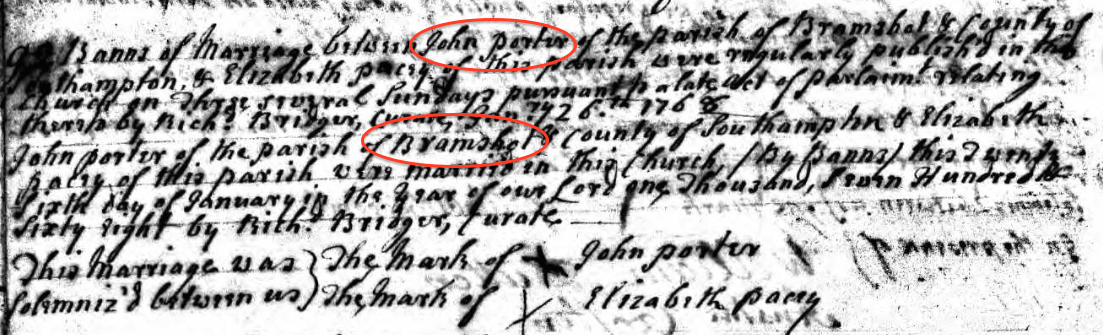 Banns of Marriage between John porter of the parish of Bramshot & County of
Southampton, & Elizabeth pacey of this parish were regularly publish'd in this
Church on three several Sundays pursuant to a late Act of parlaimt. relating
thereto by Richd. Bridger, Curate 26.th 1768
John porter of the parish of Bramshot & County of Southampton & Elizabeth
pacey of this parish were married in this Church, (By Banns) this Twenty
Sixth day of January in the year of our Lord one Thousand, Seven Hundred &
Sixty Eight by Richd. Bridger, Curate
This Marriage was } The Mark of X John porter
Solemniz'd between us } The Mark of X Elizabeth pacey